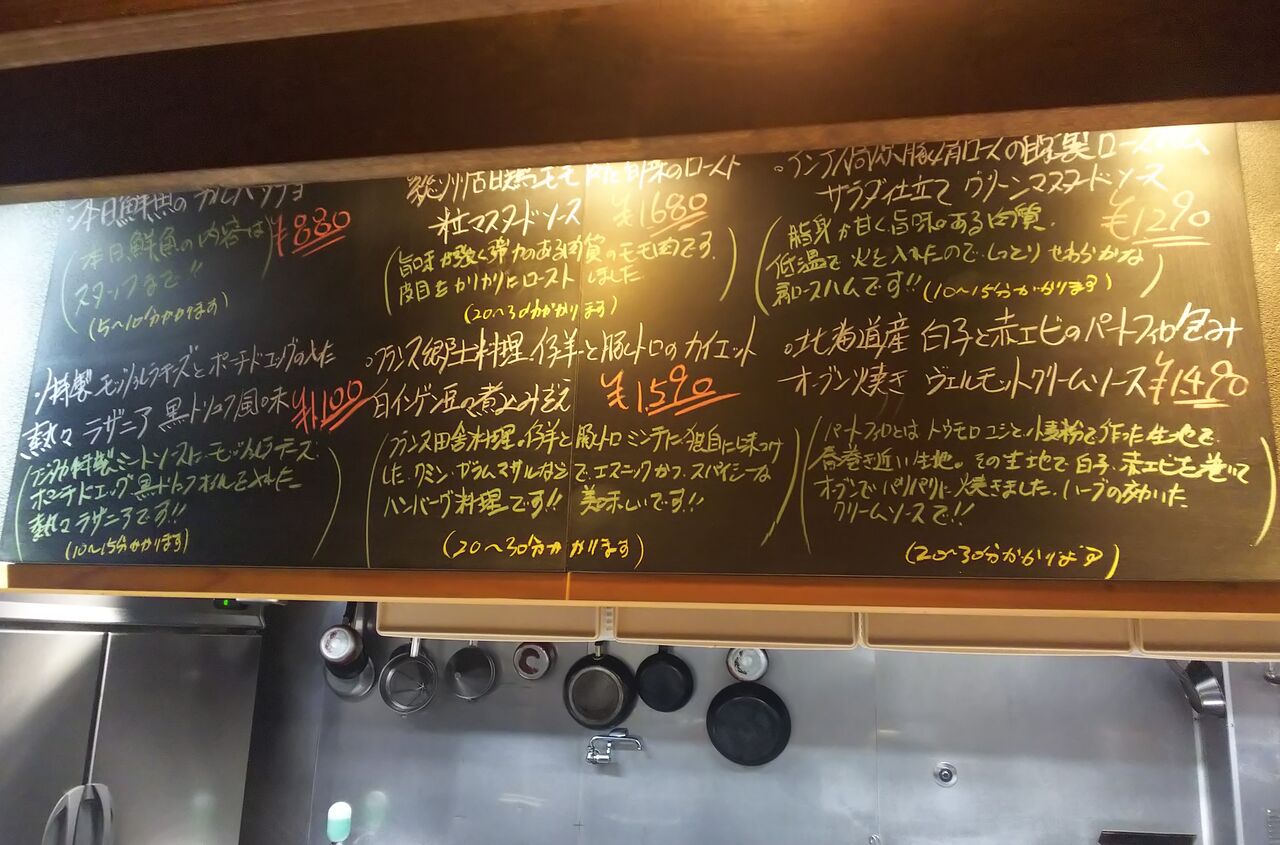 ・本日鮮魚のカルパッチョ
¥880
(本日鮮魚の内容は
スタッフまで!!
(5〜10分かかります)
特製モッツァレラチーズとポーチドエッグの入った
熱々ラザニア 黒トリュフ風味 ¥1100
特製ミートソースにモッツァレラチーズ、
ポーチドエッグ、黒トリュフオイルを入れた
熱々ラザニアです!!
(10〜15分かかります)
モモ肉のロースト
粒マスタードソース ¥1680
(旨味が強く弾力のある肉質のモモ肉です。
皮目をカリカリにローストしました。
(20〜30分かかります)
・フランス郷土料理、仔羊と豚トロのカイエット
白インゲン豆の煮込み添え ¥1590
(フランス田舎料理。仔羊と豚トロミンチに独自に味つけ
した、クミン、ガラムマサルなどで、エスニックかつ、スパイシーな
ハンバーグ料理です!! 美味しいです!!
(20〜30分かかります)
豚肩ロースの燻製ロースハム
サラダ仕立て グリーンマスタードソース
¥1290
(脂身が甘く旨味のある肉質。
低温で火を入れたので、しっとりやわらかな
肩ロースハムです!! (10〜15分かかります)
・北海道産 白子と赤エビのパートフィロ包み
オーブン焼き ヴェルモットクリームソース ¥1490
(パートフィロとは トウモロコシと、小麦粉で作った生地で、
春巻き近い生地。その生地で白子、赤エビを巻いて
オーブンでパリパリに焼きました。ハーブの効いた
クリームソースで!!
(20〜30分かかります)